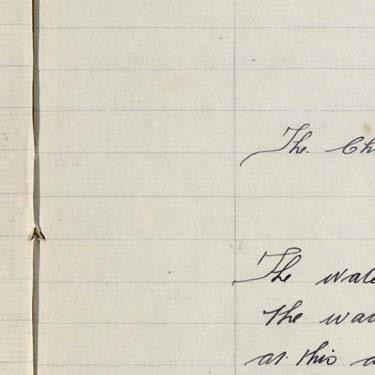 The. Ch
The wate
the wa
at this a